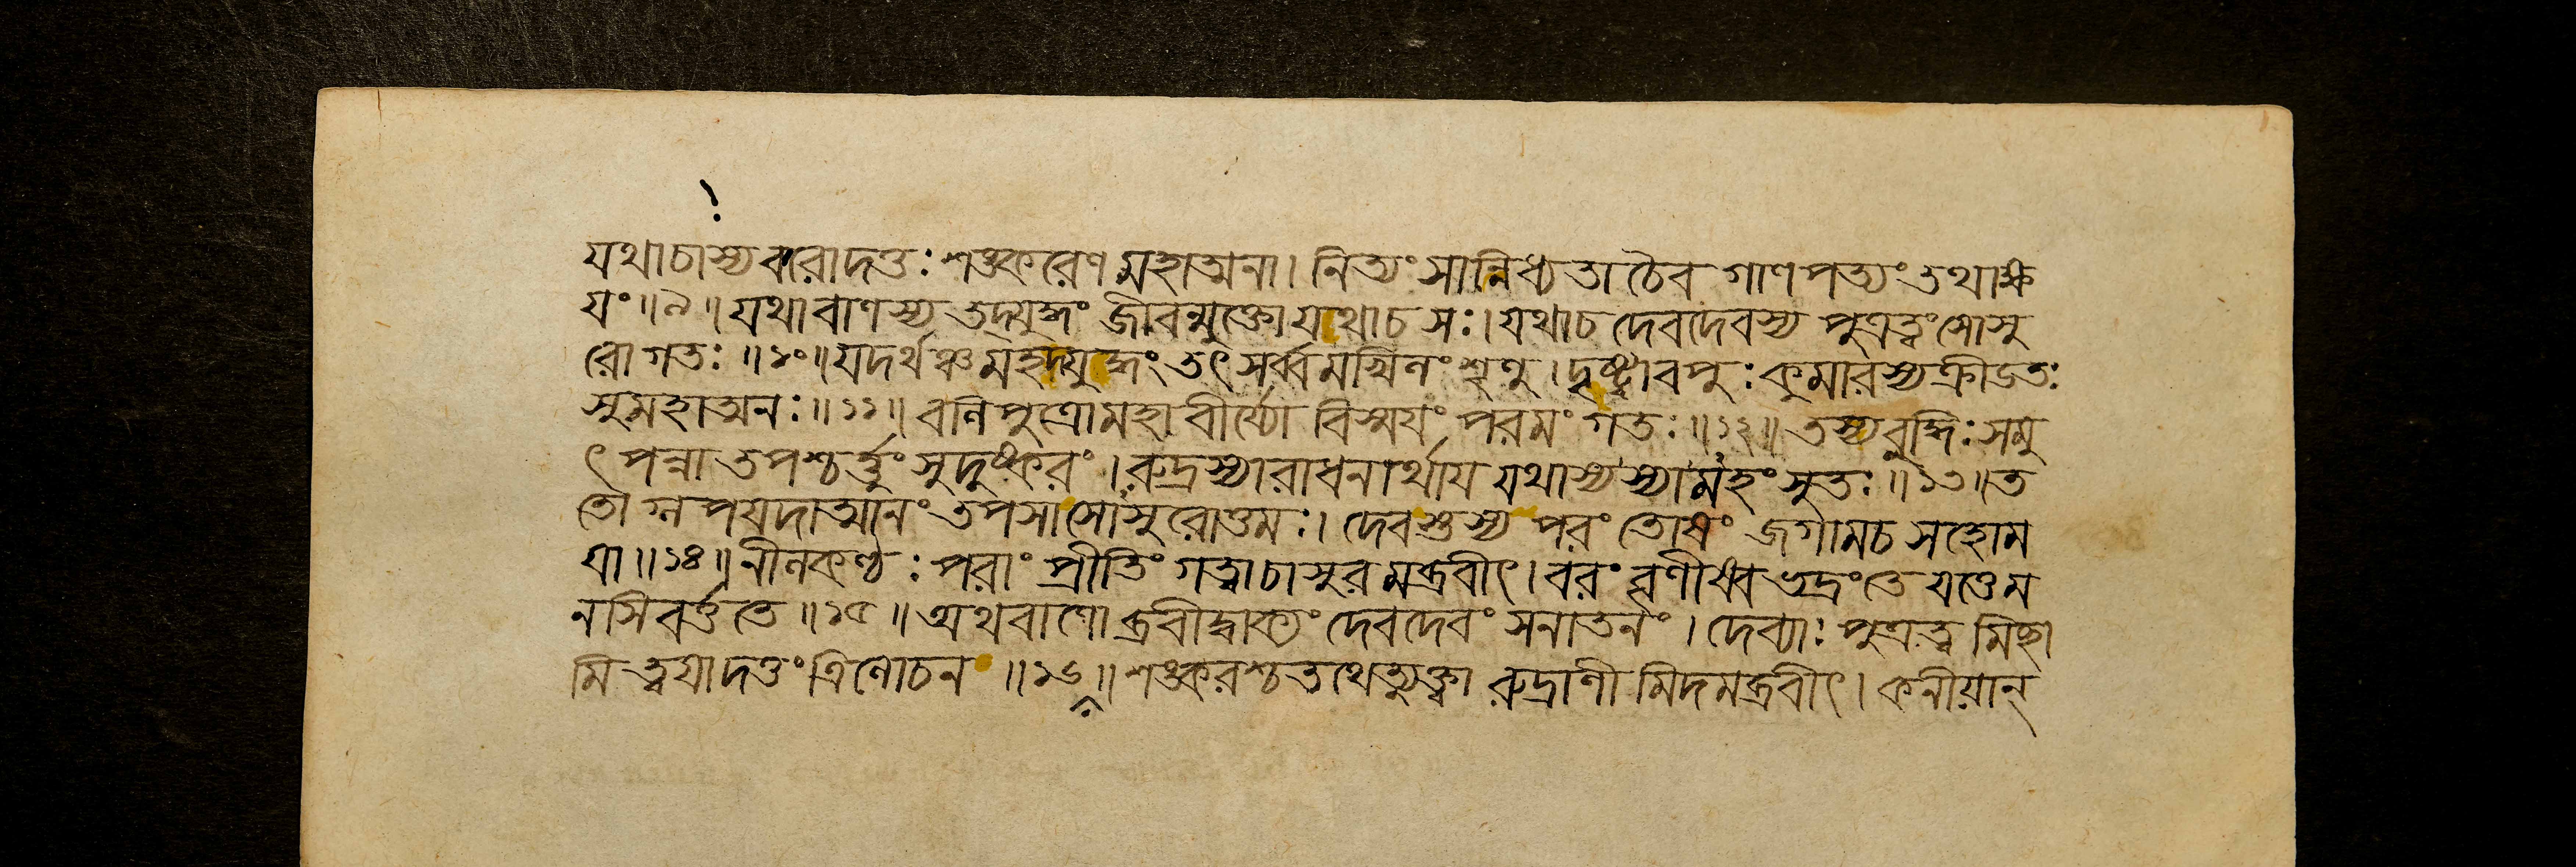 যথাচাস্যবরোদত্তঃ শঙ্করেণ মহাত্মনা। নিত্যং সান্নিধ্যতা চৈব গাণপত্যং তথাক্ষ
য়ং॥৯॥ যথা বাণস্য তদ্যুদ্ধং জীবন্মুক্তো যথাচ সঃ। যথাচ দেবদেবস্য পুত্রত্বং সোসু
রোগতঃ॥১০॥ যদর্থঞ্চ মহদ্যুদ্ধং তৎ সর্ব্বমখিলং শৃণু। দৃষ্ট্বাবপুঃ কুমারস্য ক্রীডতঃ
সুমহাত্মনঃ॥১১॥ বলিপুত্রোমহাবীর্য্যো বিস্ময়ং পরমং গতঃ॥১২॥ তস্য বুদ্ধিঃ সমু
ৎপন্না তপশ্চর্ত্তুং সুদুষ্করং। রুদ্রস্যারাধনার্থায় যথাস্য স্যামহং সুতঃ॥১৩॥ ত
তো গ্লপয়দাত্মানং তপসা সোসুরোত্তমঃ। দেবস্তুস্য পরং তোষং জগামচ সহোম
য়া॥১৪॥ নীলকণ্ঠঃ পরাং প্রীতিং গত্বাচাসুরমব্রবীৎ। বরং বৃণীষ্ব ভদ্রংতে যত্তেম
নসিবর্ত্ততে॥১৫॥ অথবাণো ব্রবীদ্বাক্যং দেবদেবং সনাতনং। দেব্যাঃ পুত্রত্ব মিচ্ছা
মি ত্বয়াদত্তং ত্রিলোচন॥১৬॥ শঙ্করশ্চ তথেত্যুক্ত্বা রুদ্রাণী মিদমব্রবীৎ। কনীয়ান্